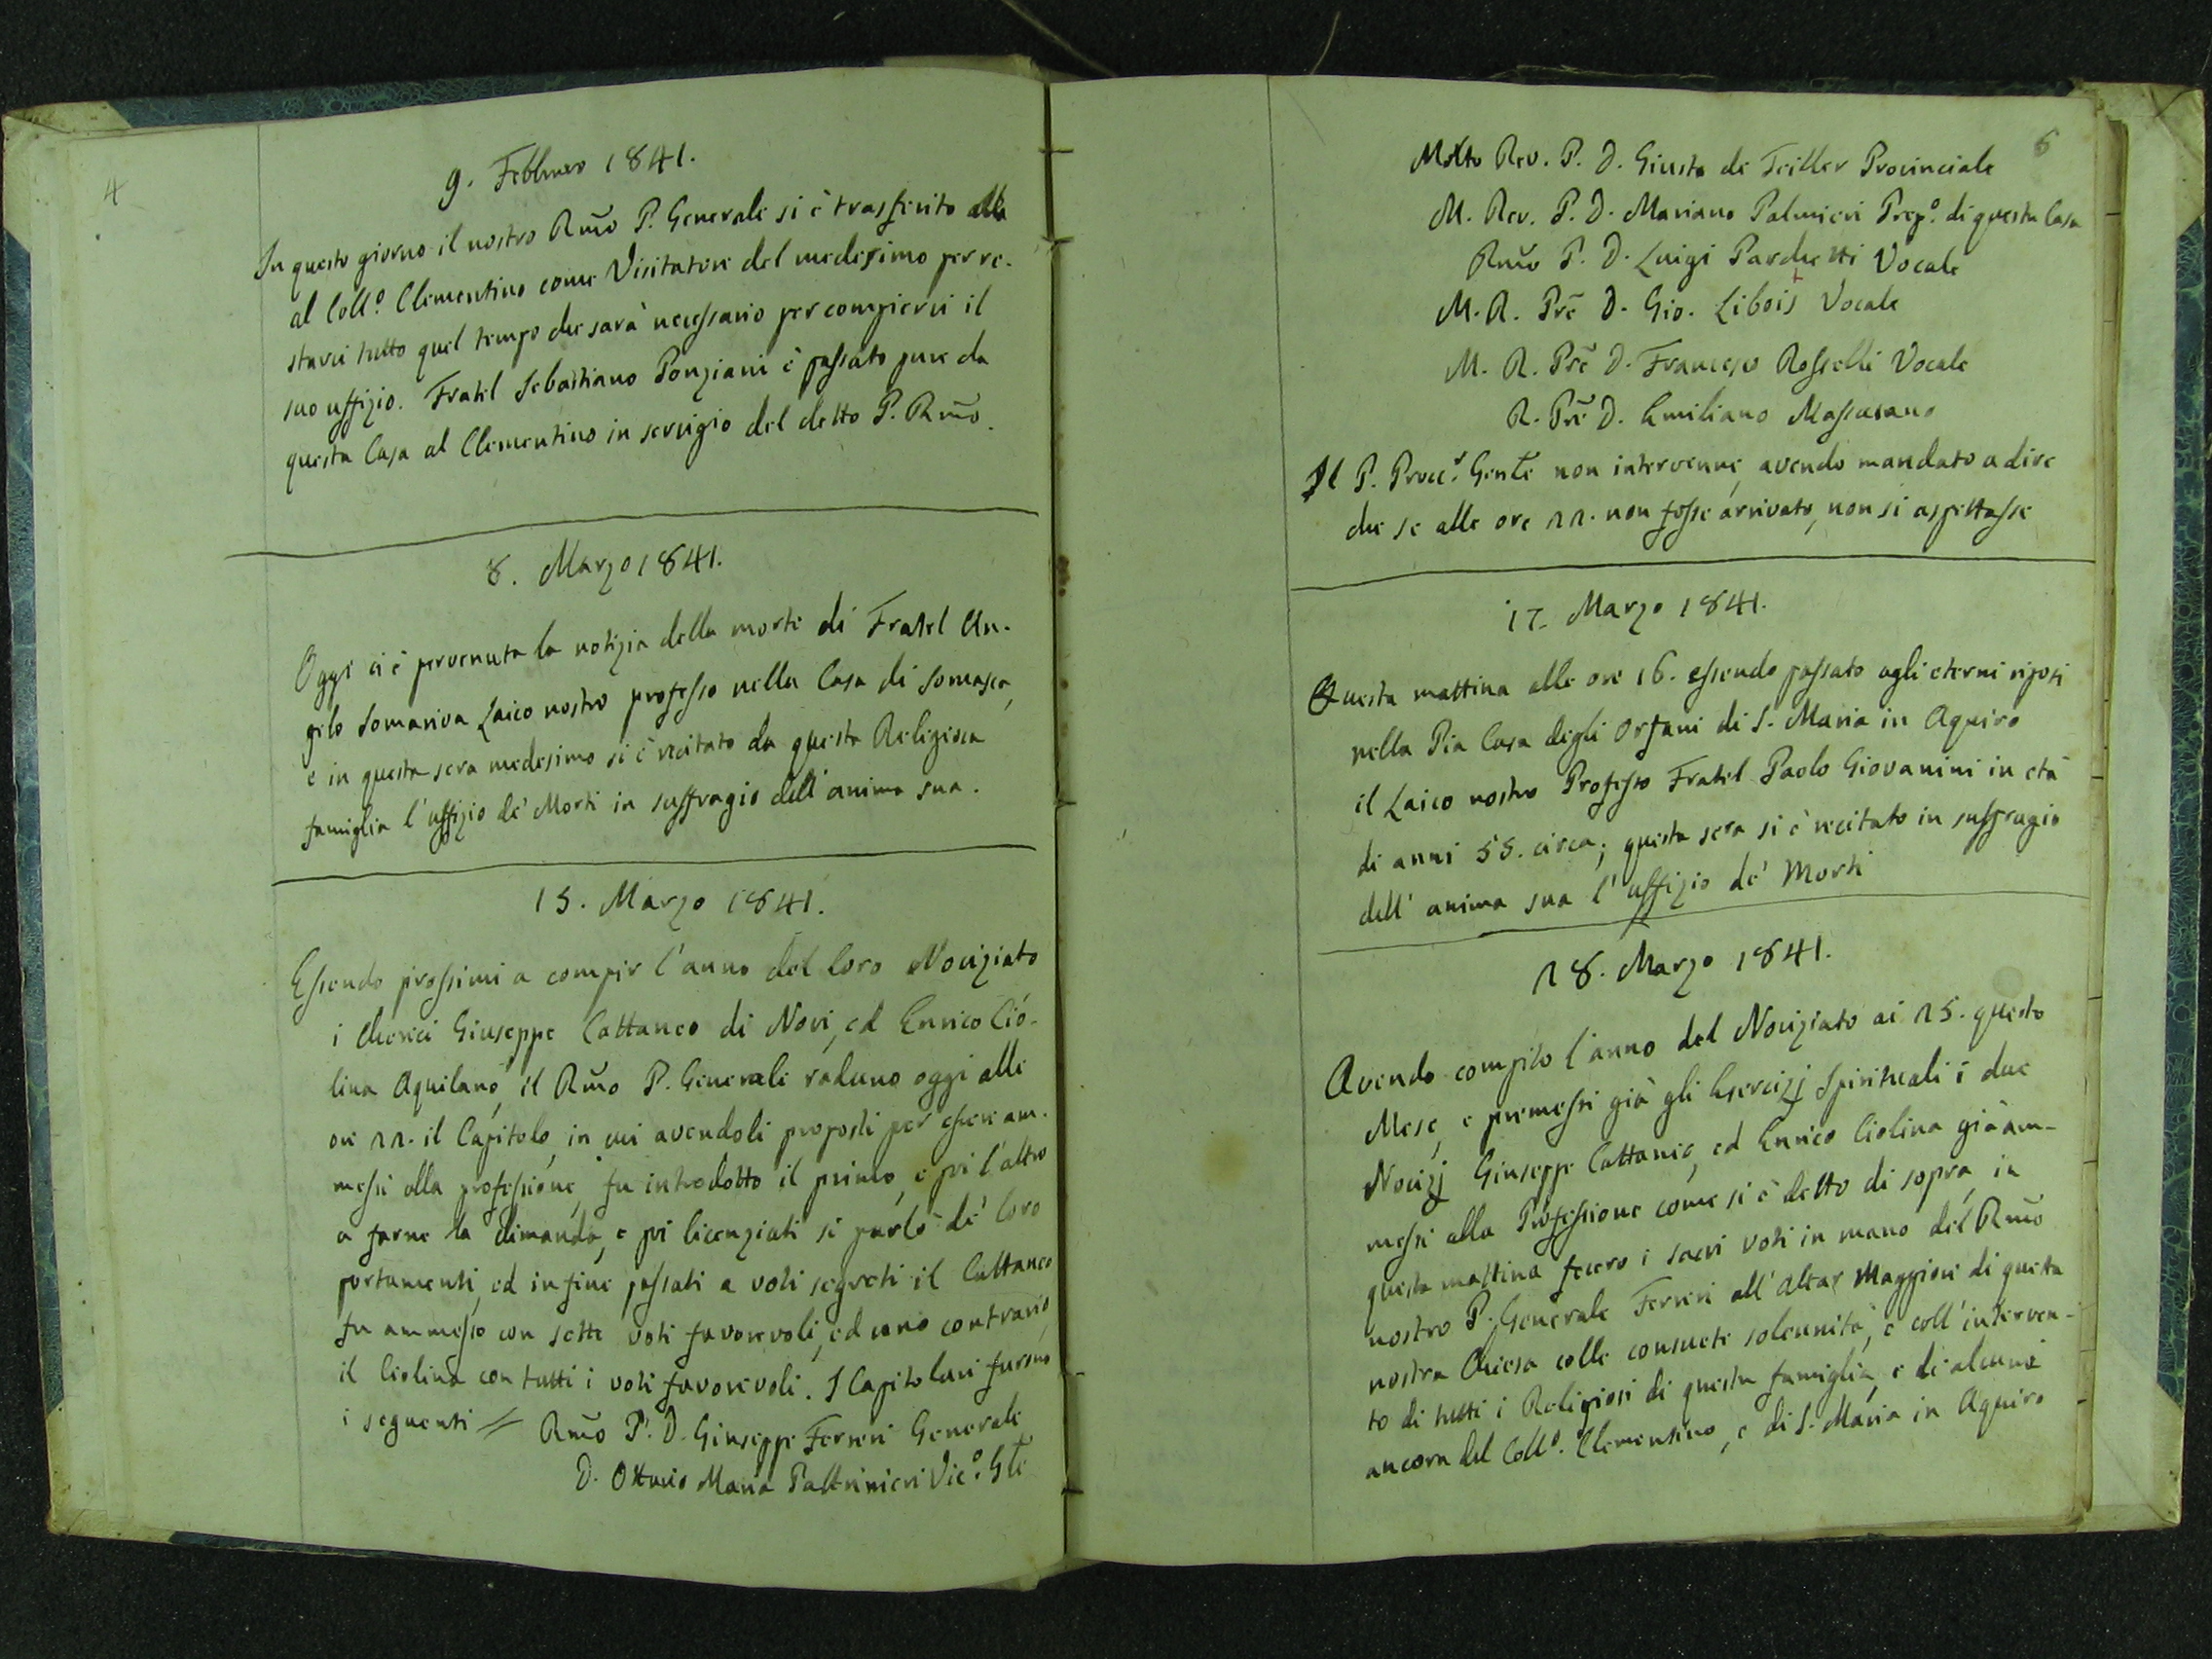 4
9. Febbraro 1841.
In questo giorno il nostro Rm̃o P. Generale si è trasferito alla
al Coll.º Clementino come Visitatore del medesimo per re-
starvi tutto quel tempo che sarà necessario per compiervi il
suo uffizio. Fratel Sebastiano Ponziani è passato pure da
questa Casa al Clementino in servigio del detto P. Rm̃o.
8. Marzo 1841.
Oggi ci è pervenuta la notizia della morte di Fratel An-
gelo Somariva Laico nostro professo nella Casa di Somasca,
e in questa sera medesimo si è recitato da questa Religiosa
famiglia l'uffizio de' Morti in suffragio dell'anima sua.
15. Marzo 1841.
Essendo prossimi a compir l'anno del loro Novigiato
i Cherici Giuseppe Cattaneo di Novi, ed Enrico Cio-
lina Aquilano, il Rm̃o P. Generale radunò oggi alle
ore 22. il Capitolo, in cui avendoli proposti per essere am-
messi alla professione, fu introdotto il primo, e poi l'altro
a farne la dimanda, e poi licenziati si parlò de' loro
portamenti, ed in fine passati a voti segreti il Cattaneo
fu ammesso con sette voti favorevoli, ed uno contrario,
il Ciolina con tutti i voti favorevoli. I Capitolari furono
i seguenti = Rm̃o P. D. Giuseppe Ferreri Generale
D. Ottavio Maria Paltrinieri Vic.º Gl̃e
5
Molto Rev. P. D. Giusto de Teiller Provinciale
M. Rev. P. D. Mariano Palmieri Prep.º di questa Casa
Rm̃o P. D. Luigi Parchetti Vocale
M. R. Prẽ D. Gio. Libois Vocale
M. R. Prẽ D. Francesco Rosselli Vocale
R. Prẽ D. Emiliano Massasano
Il P. Procr. Genl̃e non intervenne, avendo mandato a dire
che se alle ore 22. non fosse arrivato, non si aspettasse
17. Marzo 1841.
Questa mattina alle ore 16. essendo passato agli eterni riposi
nella Pia Casa degli Orfani di S. Maria in Aquiro
il Laico nostro Professo Fratel Paolo Giovanini in età
di anni 55. circa; questa sera si è recitato in suffragio
dell'anima sua l'uffizio de' Morti
28. Marzo 1841.
Avendo compito l'anno del Novigiato ai 25. questo
Mese, e premessi già gli Esercizj Spirituali i due
Novizj Giuseppe Cattanio, ed Enrico Ciolina già am-
messi alla Professione come si è detto di sopra, in
questa mattina fecero i sacri voti in mano del Rm̃o
nostro P. Generale Ferreri all'Altar Maggiore di questa
nostra Chiesa colle consuete solennità, e coll'interven-
to di tutti i Religiosi di questa famiglia, e di alcuni
ancora del Coll.º Clementino, e di S. Maria in Aquiro